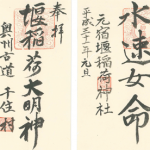 水速女命
元宿堰稲荷神社
平成三十一年元旦
奉拝
堰稲荷大明神
奥州古道 千住村